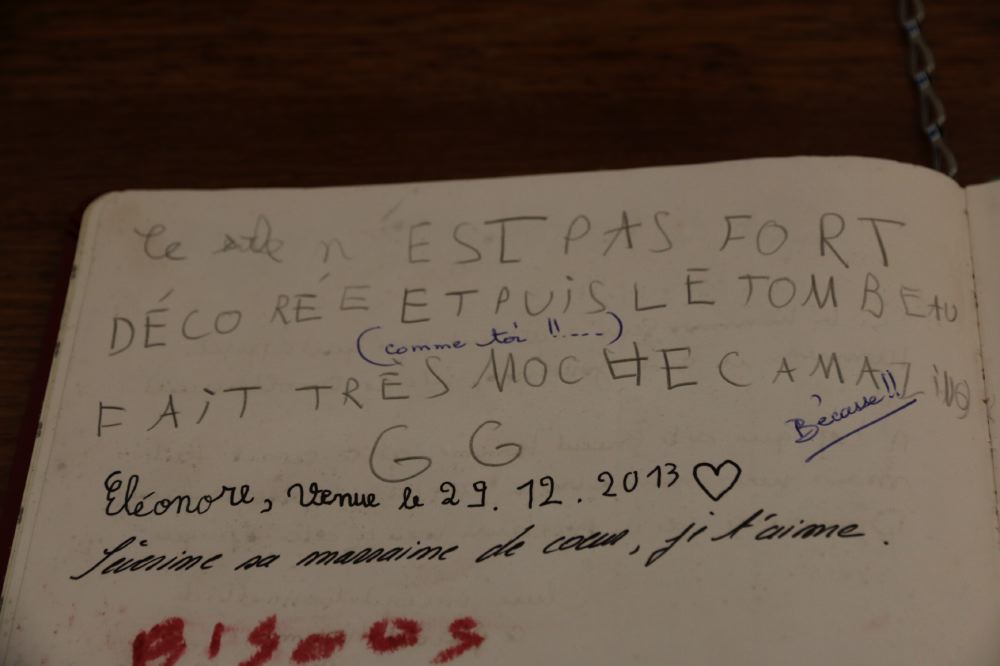 Ce n EST PAS FORT
DÉCORÉE ET PUiS LE TOMBEAU
(comme toi !!---)
FAiT TRÈS MOCHE
Bécasse!!
G G
Eléonore, Venue le 29. 12. 2013 ♡
Séverine sa marraine de coeur, je t'aime.
BISOUS